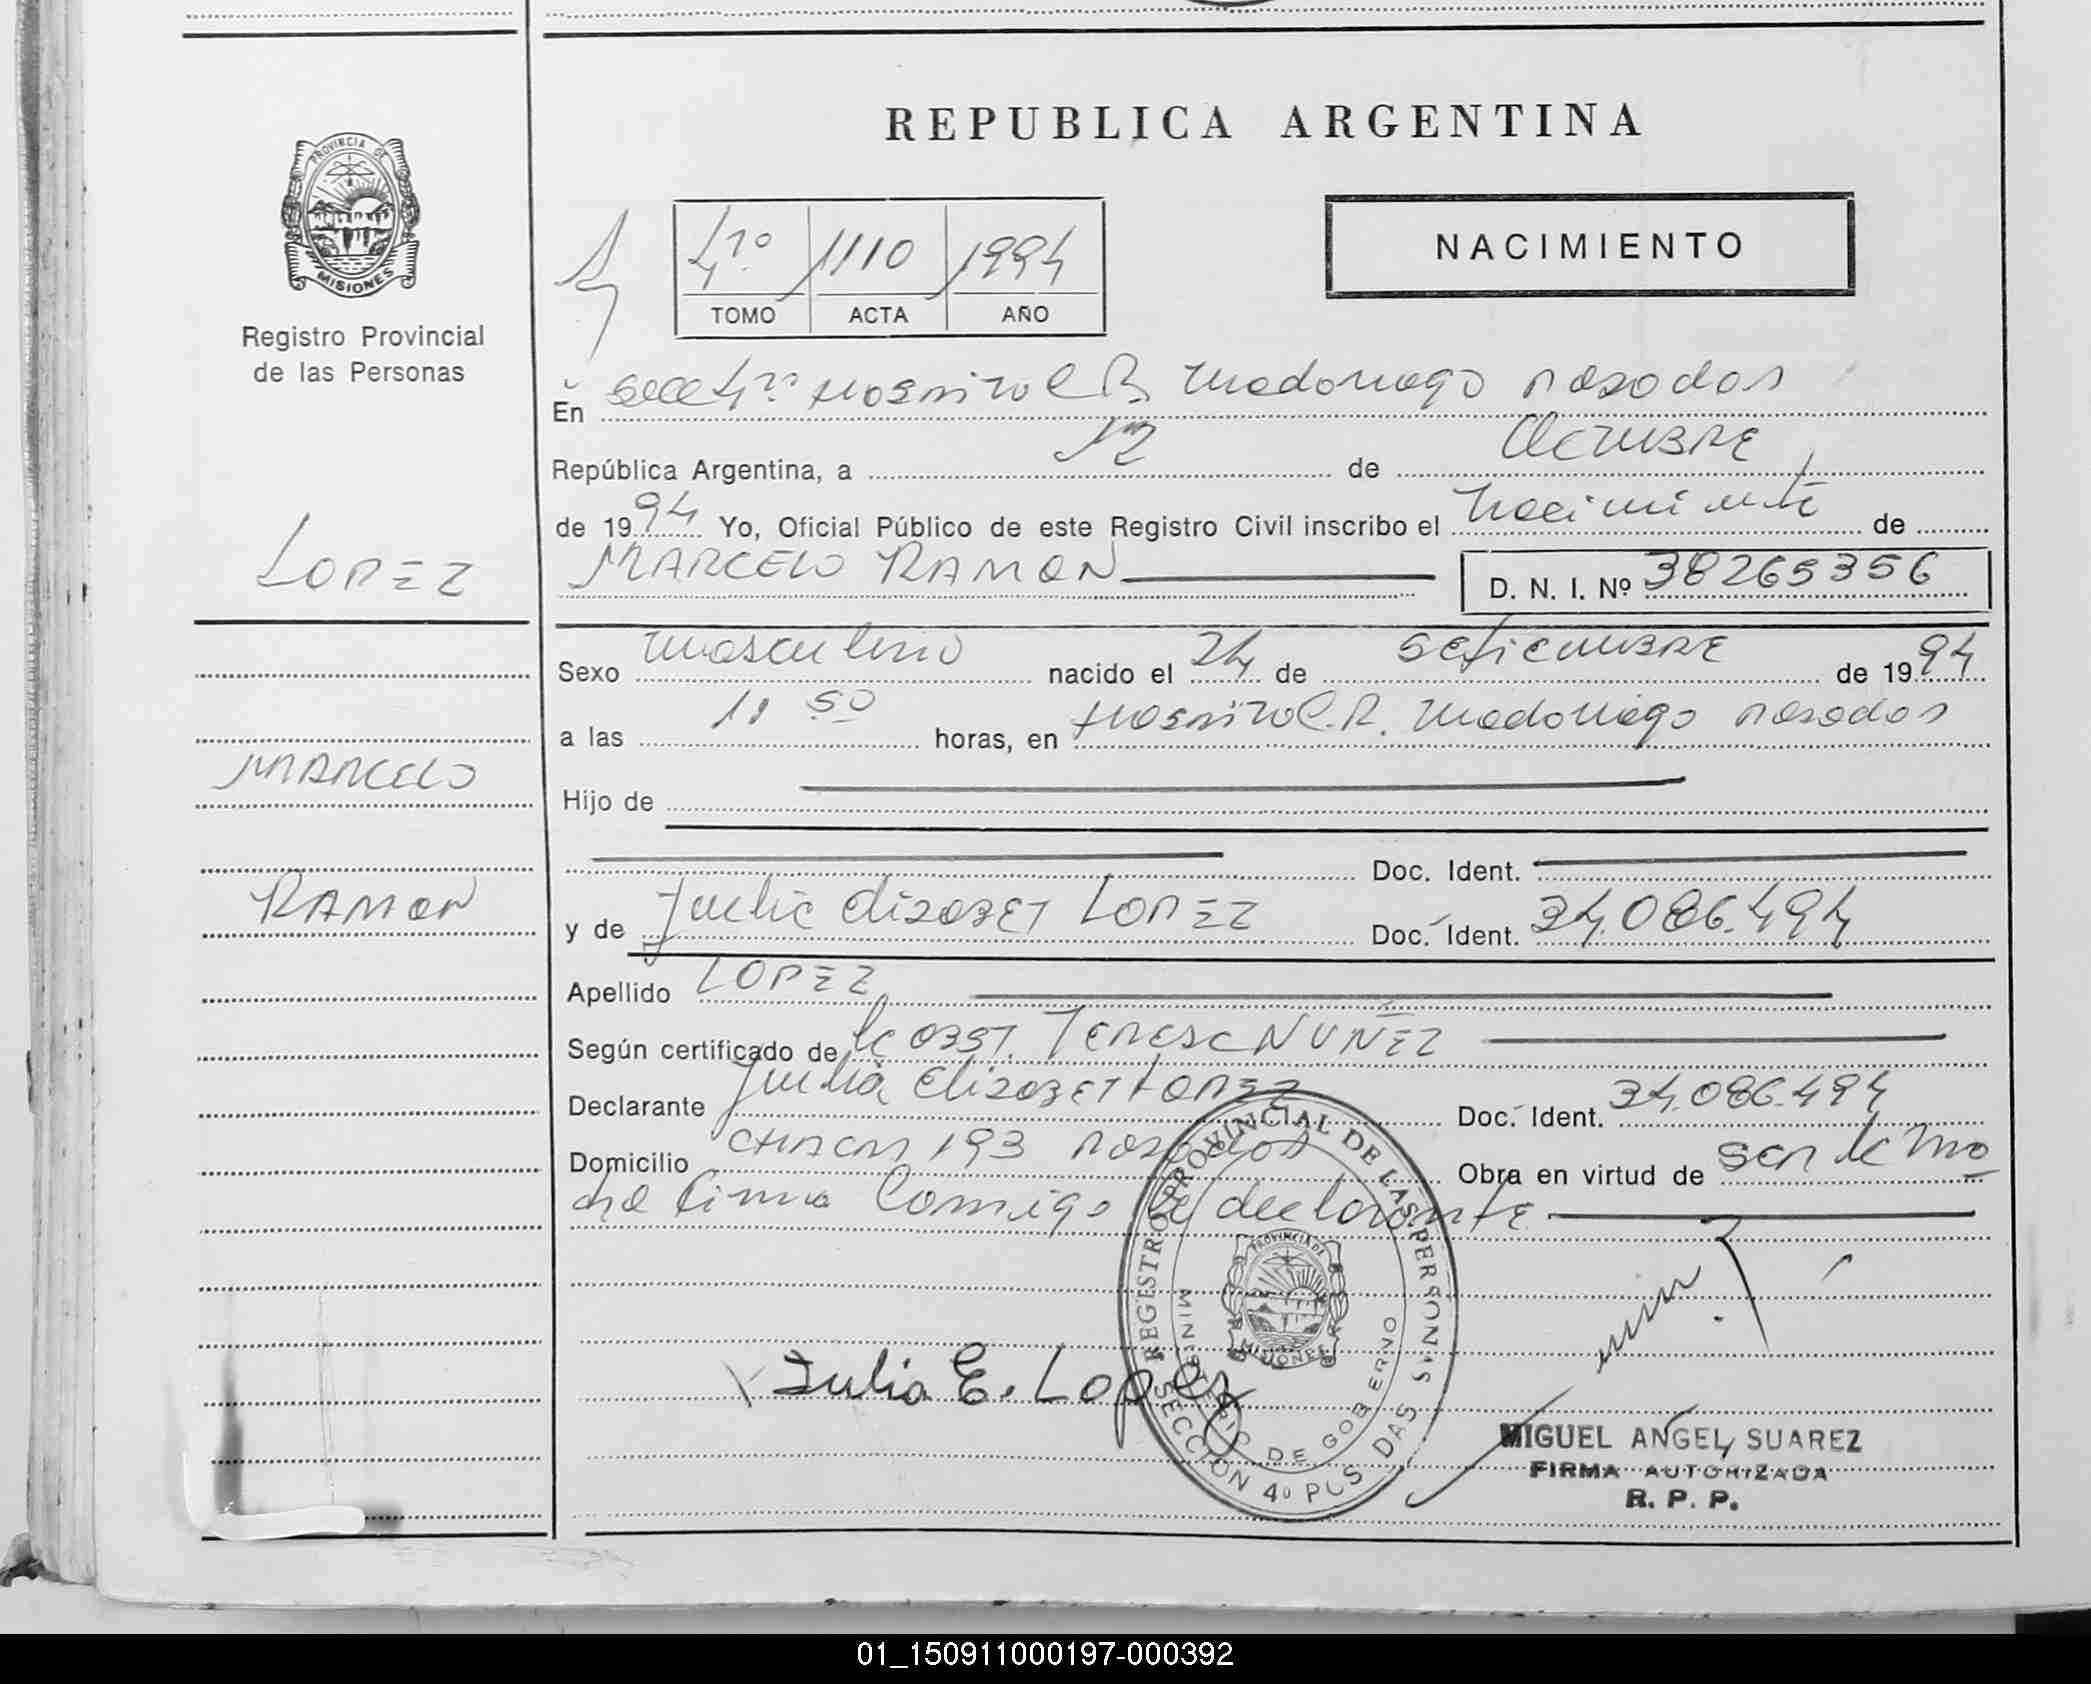 REPUBLICA ARGENTINA
PROVINCIA DE
MISIONES
Registro Provincial
de las Personas
4to 1110 1994
TOMO ACTA AÑO
NACIMIENTO
En Secc 4ta Hospital R. Madariaga Posadas
República Argentina, a 12 de Octubre
de 1994 Yo, Oficial Público de este Registro Civil inscribo el Nacimiento de
LOPEZ
MARCELO RAMON D. N. I. Nº 38265356
Sexo masculino nacido el 24 de setiembre de 1994
a las 11 50 horas, en Hospital R. Madariaga Posadas
MARCELO
Hijo de
Doc. Ident.
RAMON
y de Julia Elizabet LOPEZ Doc. Ident. 34.086.494
Apellido LOPEZ
Según certificado de la Obst. Teresa NUÑEZ
Declarante Julia Elizabet LOPEZ Doc. Ident. 34.086.494
Domicilio CHACRA 193 Posadas Obra en virtud de ser la ma
dre firma conmigo la declarante
REGISTRO PROVINCIAL DE LAS PERSONAS
MINISTERIO DE GOBIERNO
SECCION 4º POSADAS
PROVINCIA DE
MISIONES
Julia E. Lopez
MIGUEL ANGEL SUAREZ
FIRMA AUTORIZADA
R. P. P.
01_150911000197-000392